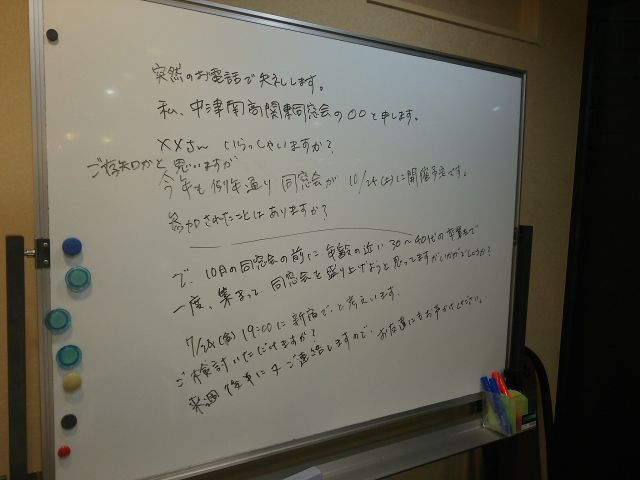 突然のお電話で失礼します。
私、中津南高関東同窓会の〇〇と申します。
××さん いらっしゃいますか?
ご存知かと思いますが
今年も例年通り同窓会が 10/24(土)に開催予定です。
参加されたことはありますか?
で、10月の同窓会の前に年齢の近い30〜40代の卒業生で
一度、集まって同窓会を盛り上げようと思ってますがいかがでしょうか?
7/24(金) 19:00に新宿で、と考えています。
ご検討いただけますか?
来週 ご連絡しますので、お友達にもお声かけください。